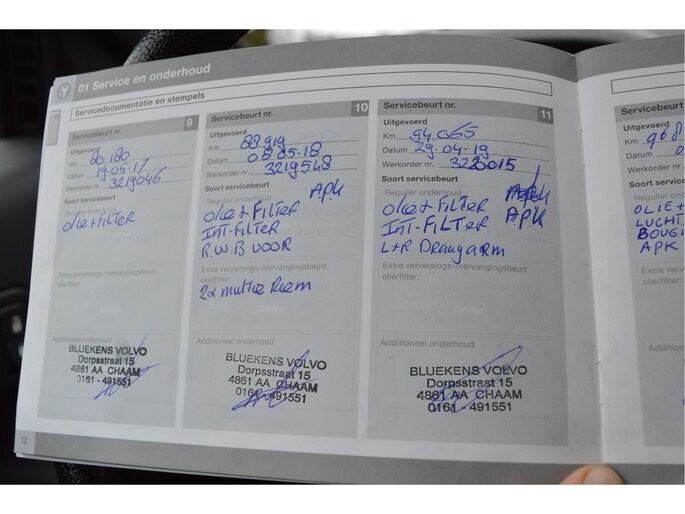 01 Service en onderhoud
Servicedocumentatie en stempels
Servicebeurt nr. 9
Uitgevoerd
Km 80 180
Datum 19-05-17
Werkorder nr. 3219046
Soort servicebeurt
Regulier onderhoud
olie + FilTER
Extra verversings-/vervangingsbeurt
olie/filter:
Additioneel onderhoud
BLUEKENS VOLVO
Dorpsstraat 15
4861 AA CHAAM
0161 - 491551
12
Servicebeurt nr. 10
Uitgevoerd
Km 88 919
Datum 08-05-18
Werkorder nr. 3219548
Soort servicebeurt A.P.K
Regulier onderhoud
olie + FilTER
INT-FilTER
R.W.B VOOR
Extra verversings-/vervangingsbeurt
olie/filter:
2x multie Riem
Additioneel onderhoud
BLUEKENS VOLVO
Dorpsstraat 15
4861 AA CHAAM
0161 - 491551
Servicebeurt nr. 11
Uitgevoerd
Km 94 065
Datum 29-04-19
Werkorder nr. 3220015
Soort servicebeurt
Regulier onderhoud
olie + FilTER APK
INT-FILTER
L+R Draagarm
Extra verversings-/vervangingsbeurt
olie/filter:
Additioneel onderhoud
BLUEKENS VOLVO
Dorpsstraat 15
4861 AA CHAAM
0161 - 491551
Servicebeurt
Uitgevoerd
Km 96 8
Datum
Werkorder nr.
Soort service
Regulier onder
OLIE +
LUCHT
BOUGI
APK
Extra verversin
olie/filter:
Additioneel on